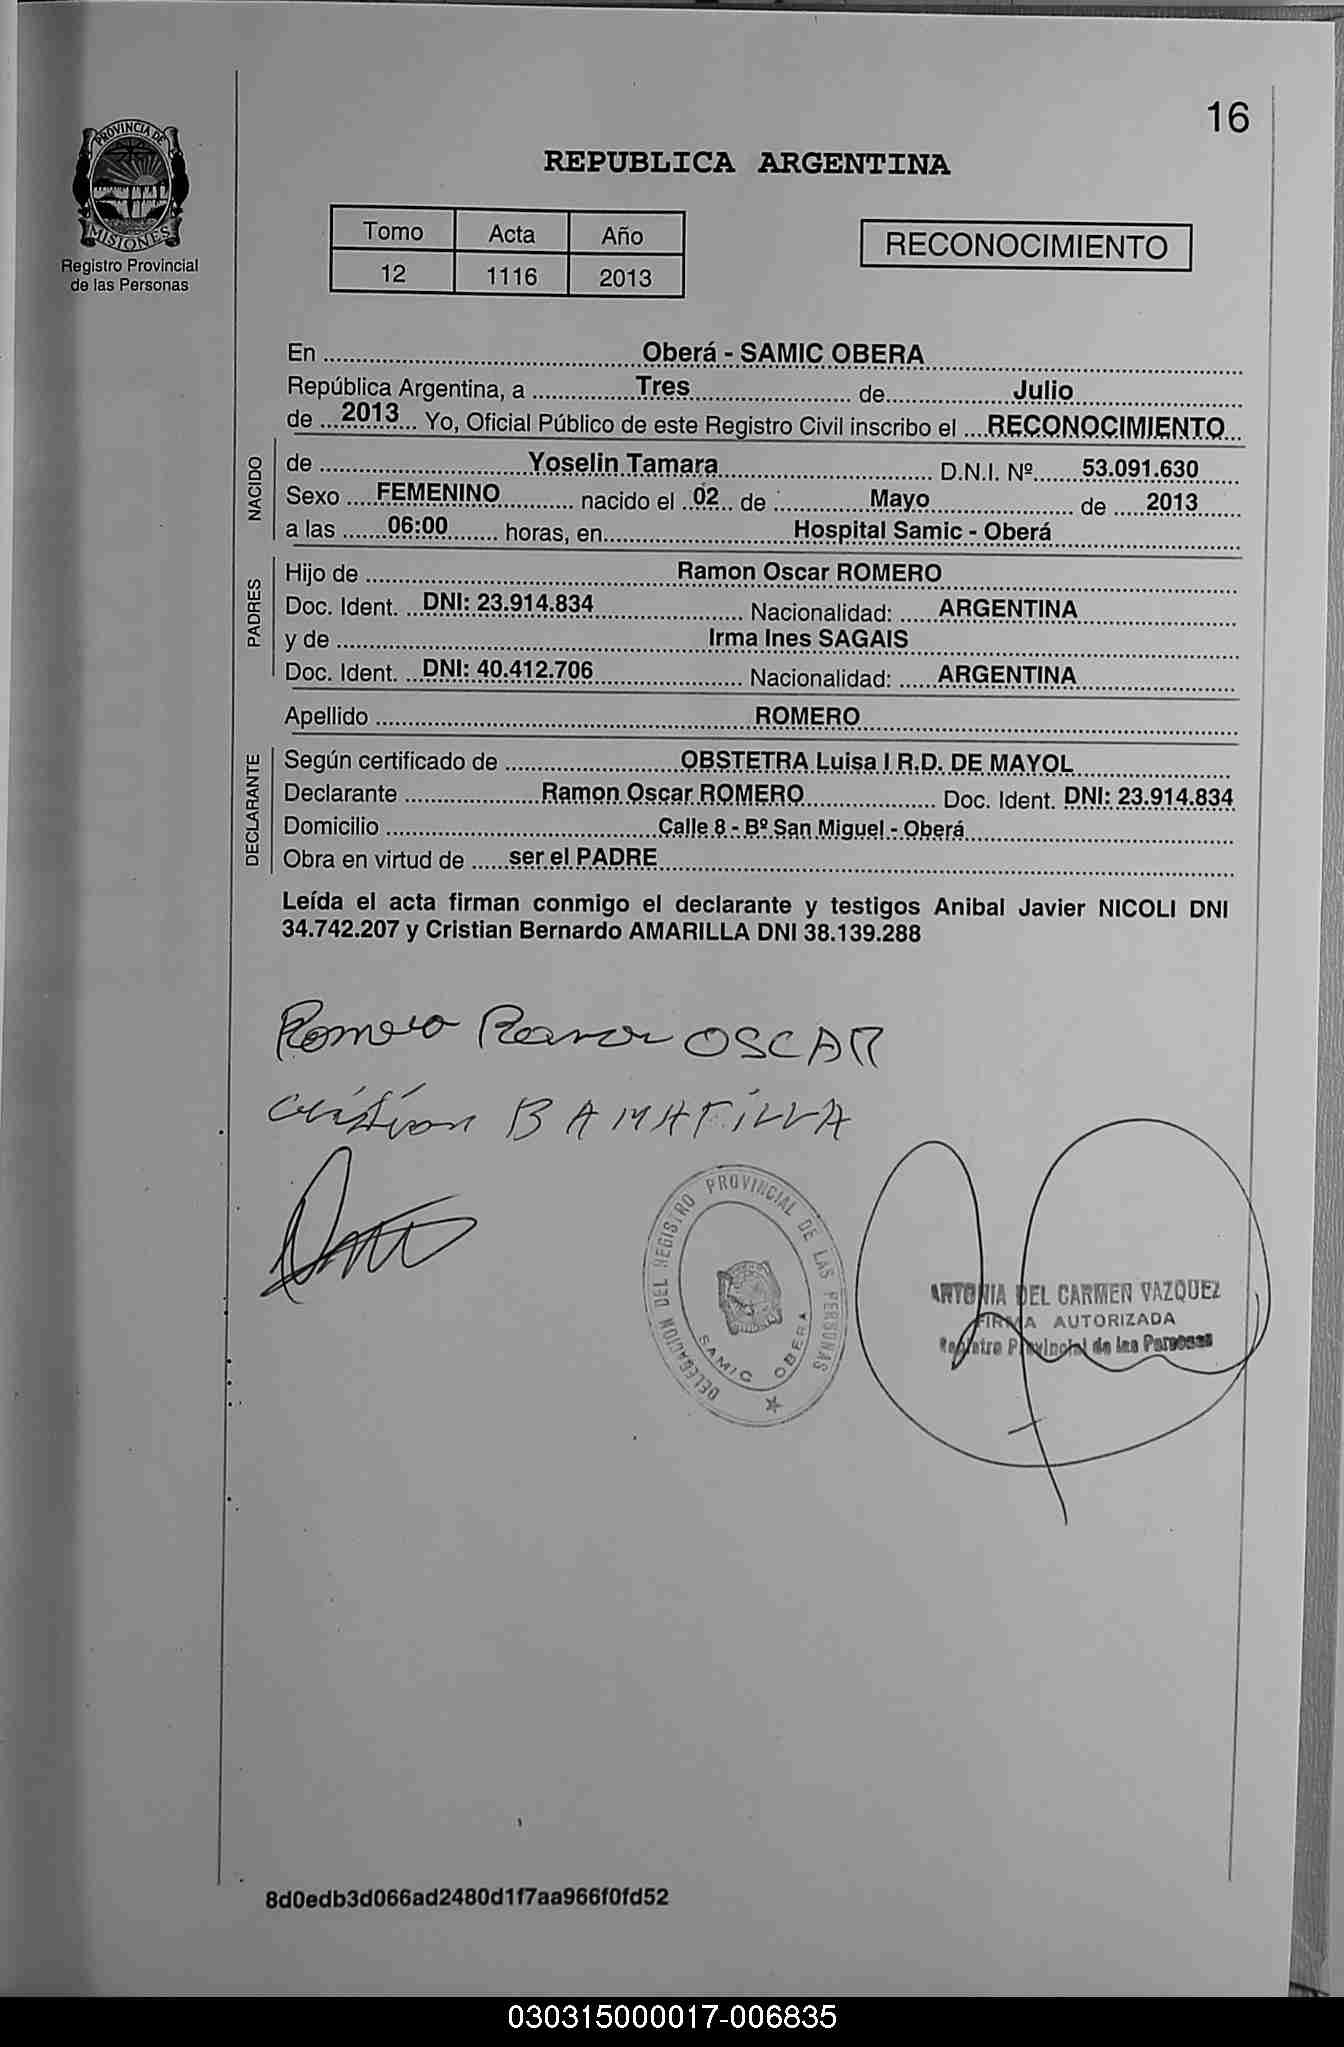 16
PROVINCIA DE
MISIONES
Registro Provincial
de las Personas
REPUBLICA ARGENTINA
Tomo Acta Año
12 1116 2013
RECONOCIMIENTO
En Oberá - SAMIC OBERA
República Argentina, a Tres de Julio
de 2013 Yo, Oficial Público de este Registro Civil inscribo el RECONOCIMIENTO
NACIDO
de Yoselin Tamara D.N.I. Nº 53.091.630
Sexo FEMENINO nacido el 02 de Mayo de 2013
a las 06:00 horas, en Hospital Samic - Oberá
PADRES
Hijo de Ramon Oscar ROMERO
Doc. Ident. DNI: 23.914.834 Nacionalidad: ARGENTINA
y de Irma Ines SAGAIS
Doc. Ident. DNI: 40.412.706 Nacionalidad: ARGENTINA
Apellido ROMERO
DECLARANTE
Según certificado de OBSTETRA Luisa I R.D. DE MAYOL
Declarante Ramon Oscar ROMERO Doc. Ident. DNI: 23.914.834
Domicilio Calle 8 - Bº San Miguel - Oberá
Obra en virtud de ser el PADRE
Leída el acta firman conmigo el declarante y testigos Anibal Javier NICOLI DNI
34.742.207 y Cristian Bernardo AMARILLA DNI 38.139.288
Romero Ramon OSCAR
Cristian B AMARILLA
DELEGACION DEL REGISTRO PROVINCIAL DE LAS PERSONAS
SAMIC OBERA
ANTONIA DEL CARMEN VAZQUEZ
FIRMA AUTORIZADA
Registro Provincial de las Personas
8d0edb3d066ad2480d1f7aa966f0fd52
030315000017-006835